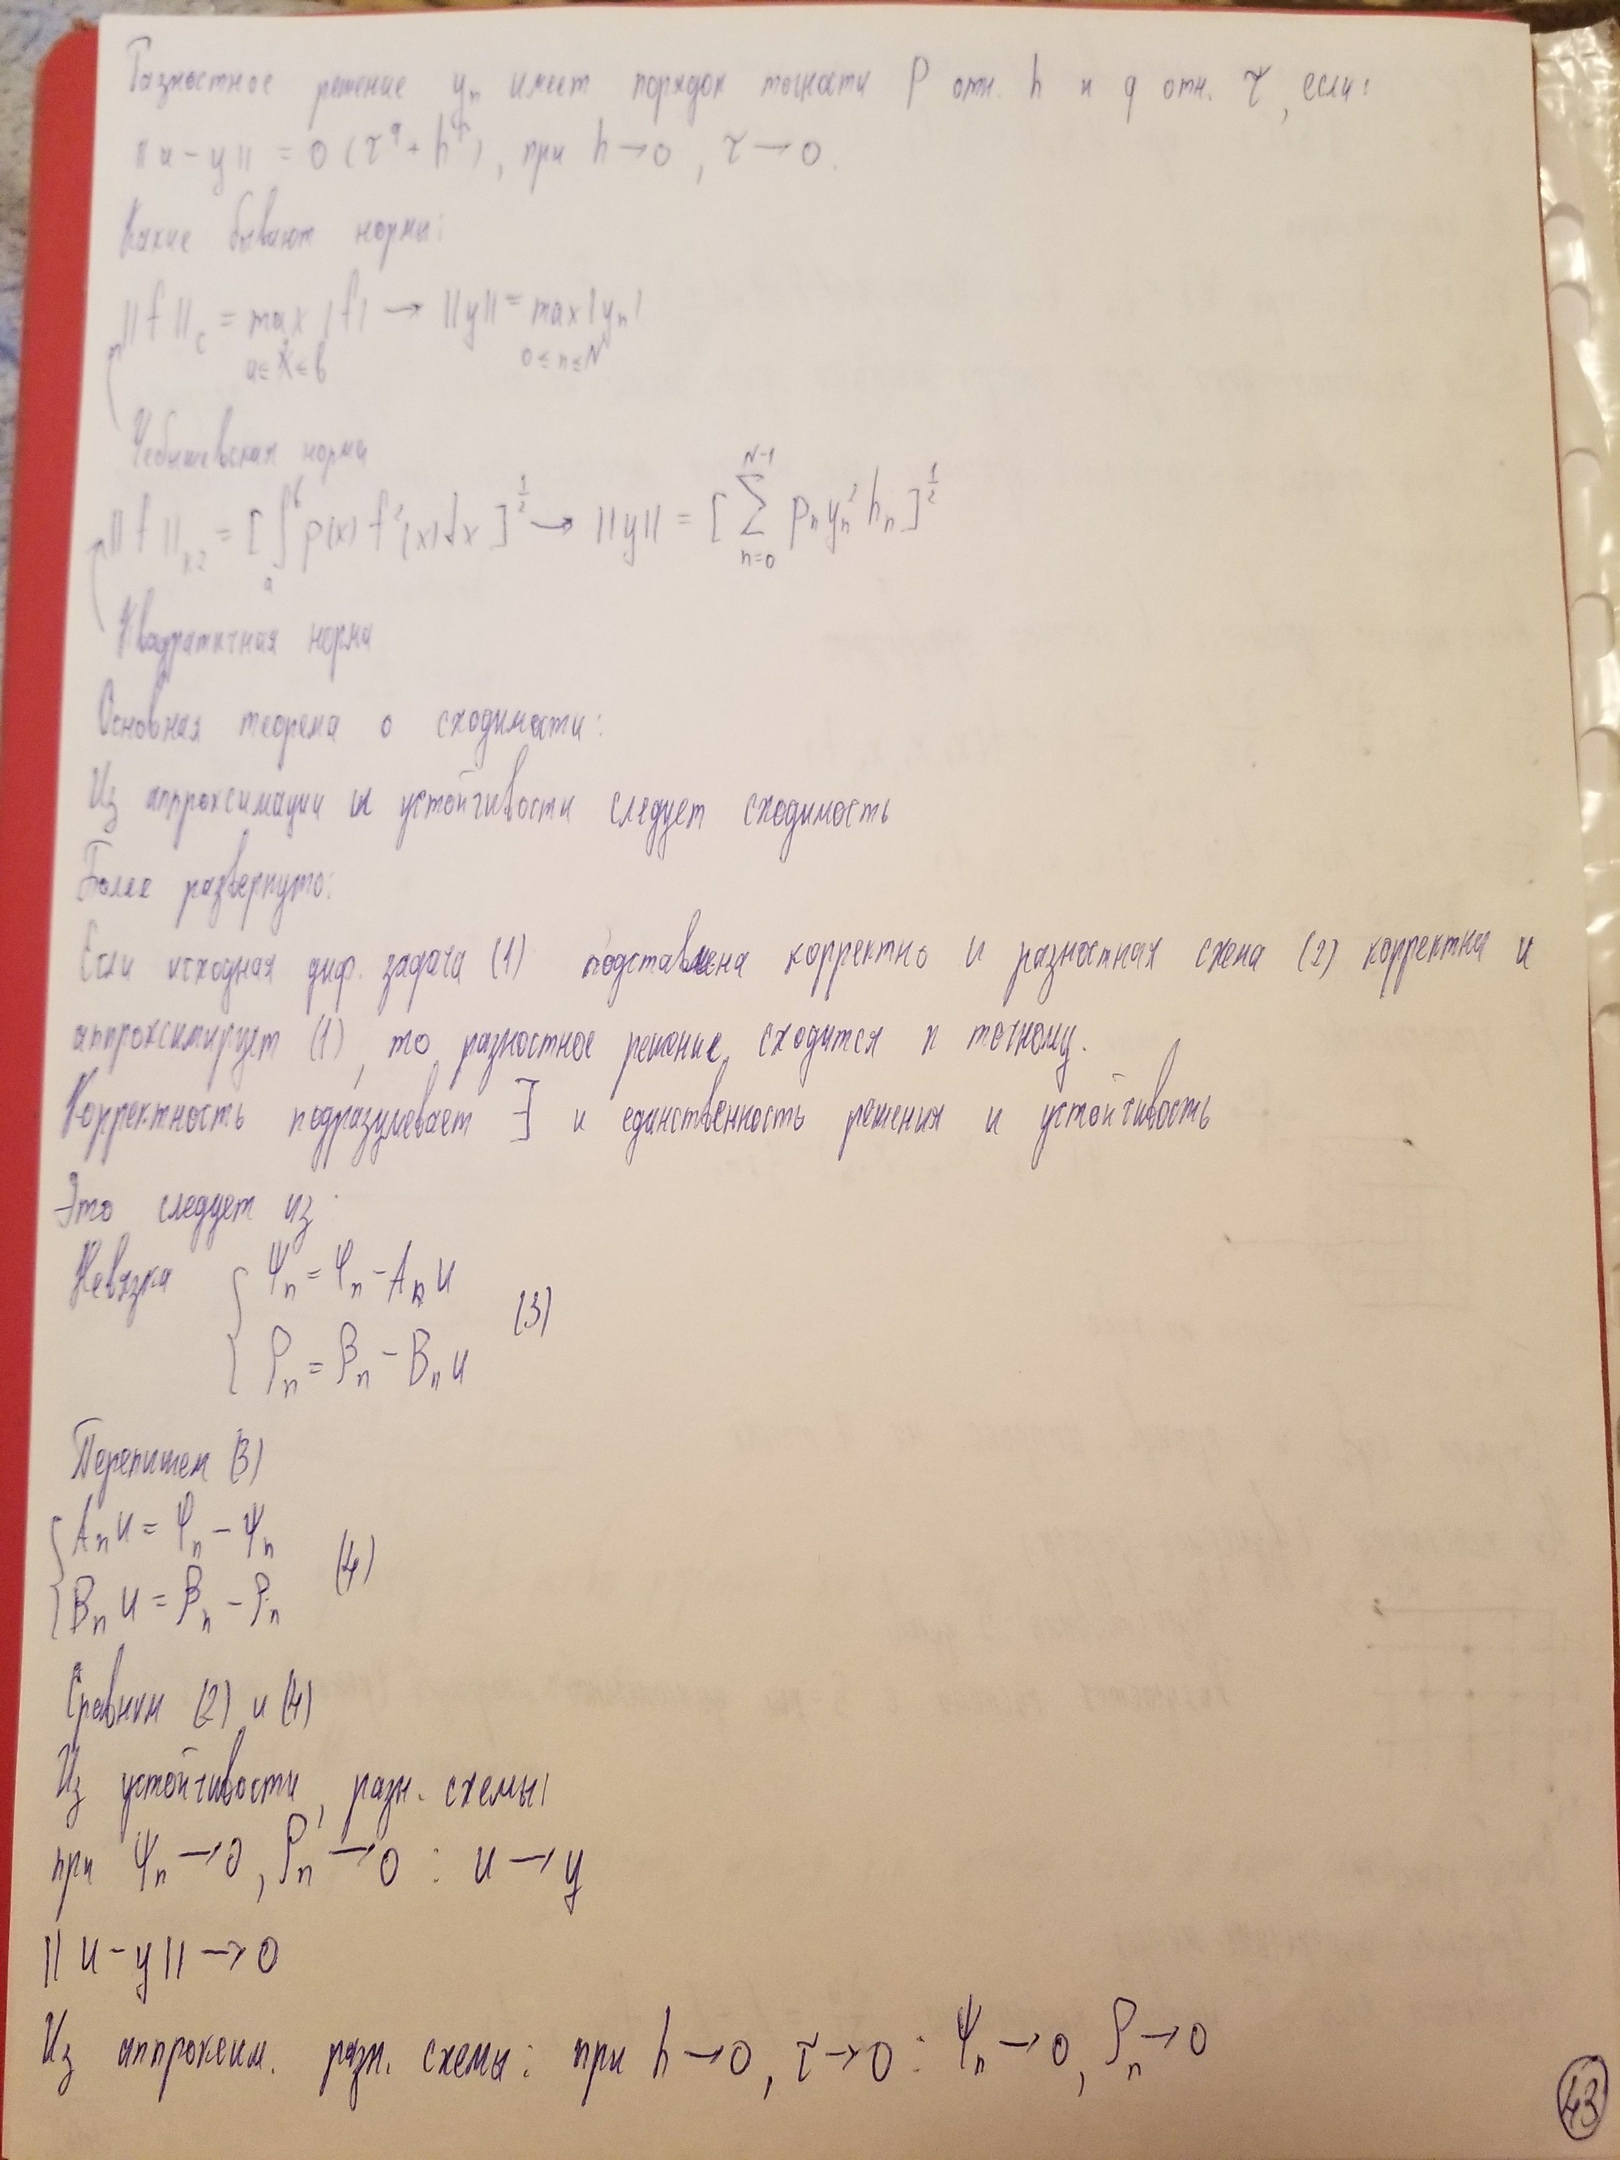 Разностное решение yₙ имеет порядок точности p отн. h и q отн. τ, если:
||u-y|| = O(τ^q + h^p), при h→0, τ→0.
Какие бывают нормы:
||f||_C = max |f| → ||y|| = max|yₙ|
a≤x≤b 0≤n≤N
Чебышевская норма
||f|| = [∫ₐᵇ ρ(x) f²(x)dx]^½ → ||y|| = [∑_{n=0}^{N-1} ρₙyₙ²hₙ]^½
Квадратичная норма
Основная теорема о сходимости:
Из аппроксимации и устойчивости следует сходимость
Более развернуто:
Если исходная диф. задача (1) подставлена корректно и разностная схема (2) корректна и
аппроксимирует (1), то разностное решение сходится к точному.
Корректность подразумевает ∃ и единственность решения и устойчивость
Это следует из:
Невязка { ψₙ = φₙ - Aₙu
ρₙ = βₙ - Bₙu (3)
Перепишем (3)
{ Aₙu = φₙ - ψₙ
Bₙu = βₙ - ρₙ (4)
Сравним (2) и (4)
Из устойчивости разн. схемы:
при ψₙ→0, ρₙ→0 : u→y
||u-y||→0
Из аппроксим. разн. схемы: при h→0, τ→0 : ψₙ→0, ρₙ→0
43